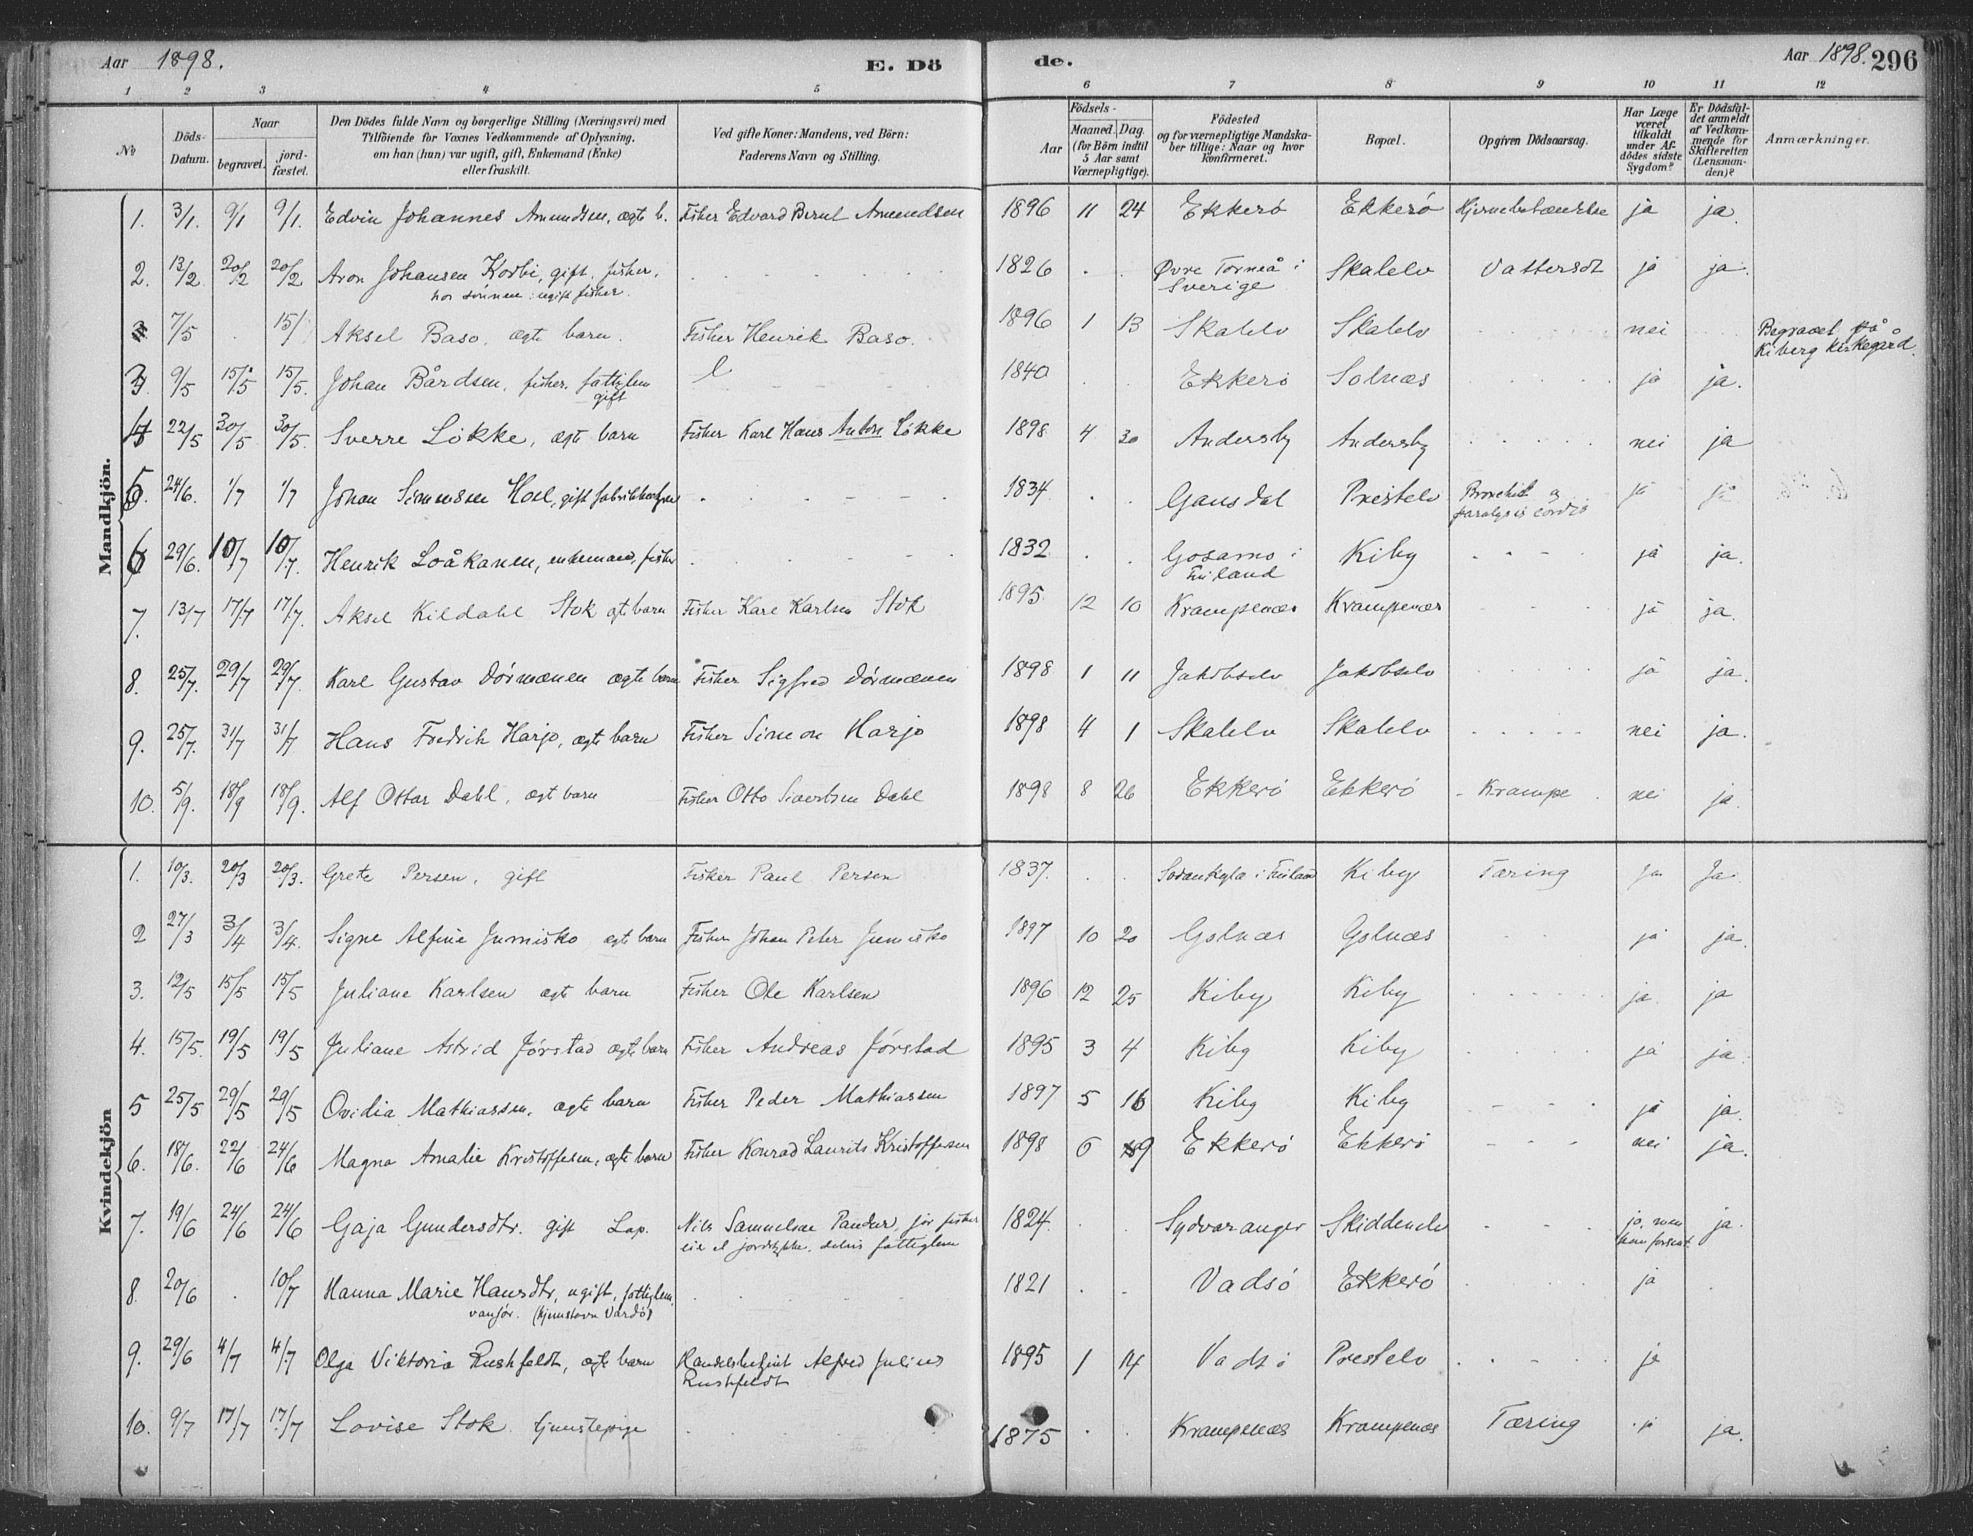 Aar 1898.
E. Dö
de.
Aar 1898. 296
1 2 3 4 5 6 7 8 9 10 11 12
No
Döds-Datum.
Naar
begravet.
jord-fæstet.
Den Dödes fulde Navn og borgerlige Stilling (Næringsvei) med
Tilföiende for Voxnes Vedkommende af Oplysning,
om han (hun) var ugift, gift, Enkemand (Enke)
eller fraskilt.
Ved gifte Koner: Mandens, ved Börn:
Faderens Navn og Stilling.
Födsels-
Aar
Maaned. Dag.
(for Börn indtil
5 Aar samt
Værnepligtige).
Födested
og for værnepligtige Mandska-
ber tillige: Naar og hvor
konfirmeret.
Bopæl.
Opgiven Dödsaarsag.
Har Læge
været
tilkaldt
under Af-
dödes sidste
Sygdom?
Er Dödsfal-
det anmeldt
af Vedkom-
mende for
Skifteretten
(Lensman-
den)?
Anmærkninger.
Mandkjön.
1. 3/1. 9/1 9/1. Edvin Johannes Amundsen, ægte b. Fisker Edvard Bernt Amundsen 1896 11 24 Ekkerö Ekkerö Hjernebetændelse ja ja.
2. 13/2 20/2 20/2 Aron Johansen Korbi, gift, fisker, 1826 Øvre Torneå i Skalelv Vattersot ja ja.
hos sønnen: ugift fisker. Sverige
7/5 15/ Aksel Baso, ægte barn. Fisker Henrik Baso. 1896 1 13 Skalelv Skalelv nei Begravet på
Kiberg kirkegård.
3. 9/5 15/5 15/5. Johan Bårdsen, fisker, fattiglem 1840 Ekkerö Golnæs ja ja.
gift
4 22/5 30/5 30/5. Sverre Lökke, ægte barn Fisker Karl Hans Anton Lökke 1898 4 30 Andersby Andersby nei ja
5. 24/6. 1/7 1/7 Johan Simonsen Hoel, gift 1834 Prestelv Bronchit og ja ja
paralysis cordis
6 29/6. 10/7 10/7. Henrik Loåkanen, enkemand, fisker 1832 i Kiby ja ja.
Finland
7. 13/7 17/7 17/7. Aksel Kildahl Stok ægte barn Fisker Karl Karlsen Stok 1895. 12 10 Krampenæs Krampenæs ja ja.
8. 25/7. 29/7 29/7. Karl Gustav Dörmænen ægte barn Fisker Sigfred Dörmænen 1898 1 11 Jakobselv Jakobselv ja ja.
9. 25/7. 31/7 31/7 Hans Fredrik Harjo, ægte barn Fisker Simon Harjo 1898 4 1 Skalelv Skalelv nei ja.
10. 5/9. 18/9 18/9. Alf Ottar Dahl, ægte barn Fisker Otto Sivertsen Dahl 1898 8 26 Ekkerö Ekkerö Krampe nei ja.
Kvindekjön
1. 10/3. 20/3 20/3. Grete Persen, gift Fisker Paul Persen 1837. Sodankyla i Finland Kiby Tæring ja Ja
2 27/3 3/4 3/4. Signe Alfine Jumisko ægte barn Fisker Johan Peter Jumisko 1897 10 20 Golnæs Golnæs ja ja.
3. 12/5 15/5 15/5 Juliane Karlsen ægte barn Fisker Ole Karlsen 1896 12 25 Kiby Kiby ja. ja
4. 15/5. 19/5 19/5 Juliane Astrid Jörstad ægte barn Fisker Andreas Jörstad 1895 3 4 Kiby Kiby ja ja
5 25/5 29/5 29/5 Ovidia Mathiassen, ægte barn Fisker Peder Mathiassen 1897 5 16 Kiby Kiby ja ja.
6. 18/6. 22/6 24/6 Magna Amalie Kristoffersen, ægte barn Fisker Konrad Laurits Kristoffersen 1898 6 9 Ekkerö Ekkerö nei ja.
7. 19/6 24/6 24/6 Gaja Gundersdtr. gift Lap. Nils Samuelsen Pandur, för fisker 1824. Sydvaranger Skiddenelv ja, men ja.
jordstykke, delvis fattiglem kom forsent
8. 20/6 10/7 Hanna Marie Hansdtr, ugift, fattiglem, 1821 Vadsö Ekkerö ja
vanför. (hjemstavn Vardö)
9. 29/6 4/7 4/7 Olga Viktoria Rushfeldt, ægte barn Handelsbetjent Alfred Julius 1895 1 14 Vadsö Prestelv ja
Rushfeldt
10. 9/7 17/7 17/7 Lovise Stok tjenstepige 1875 Krampenæs Krampenæs Tæring ja ja.